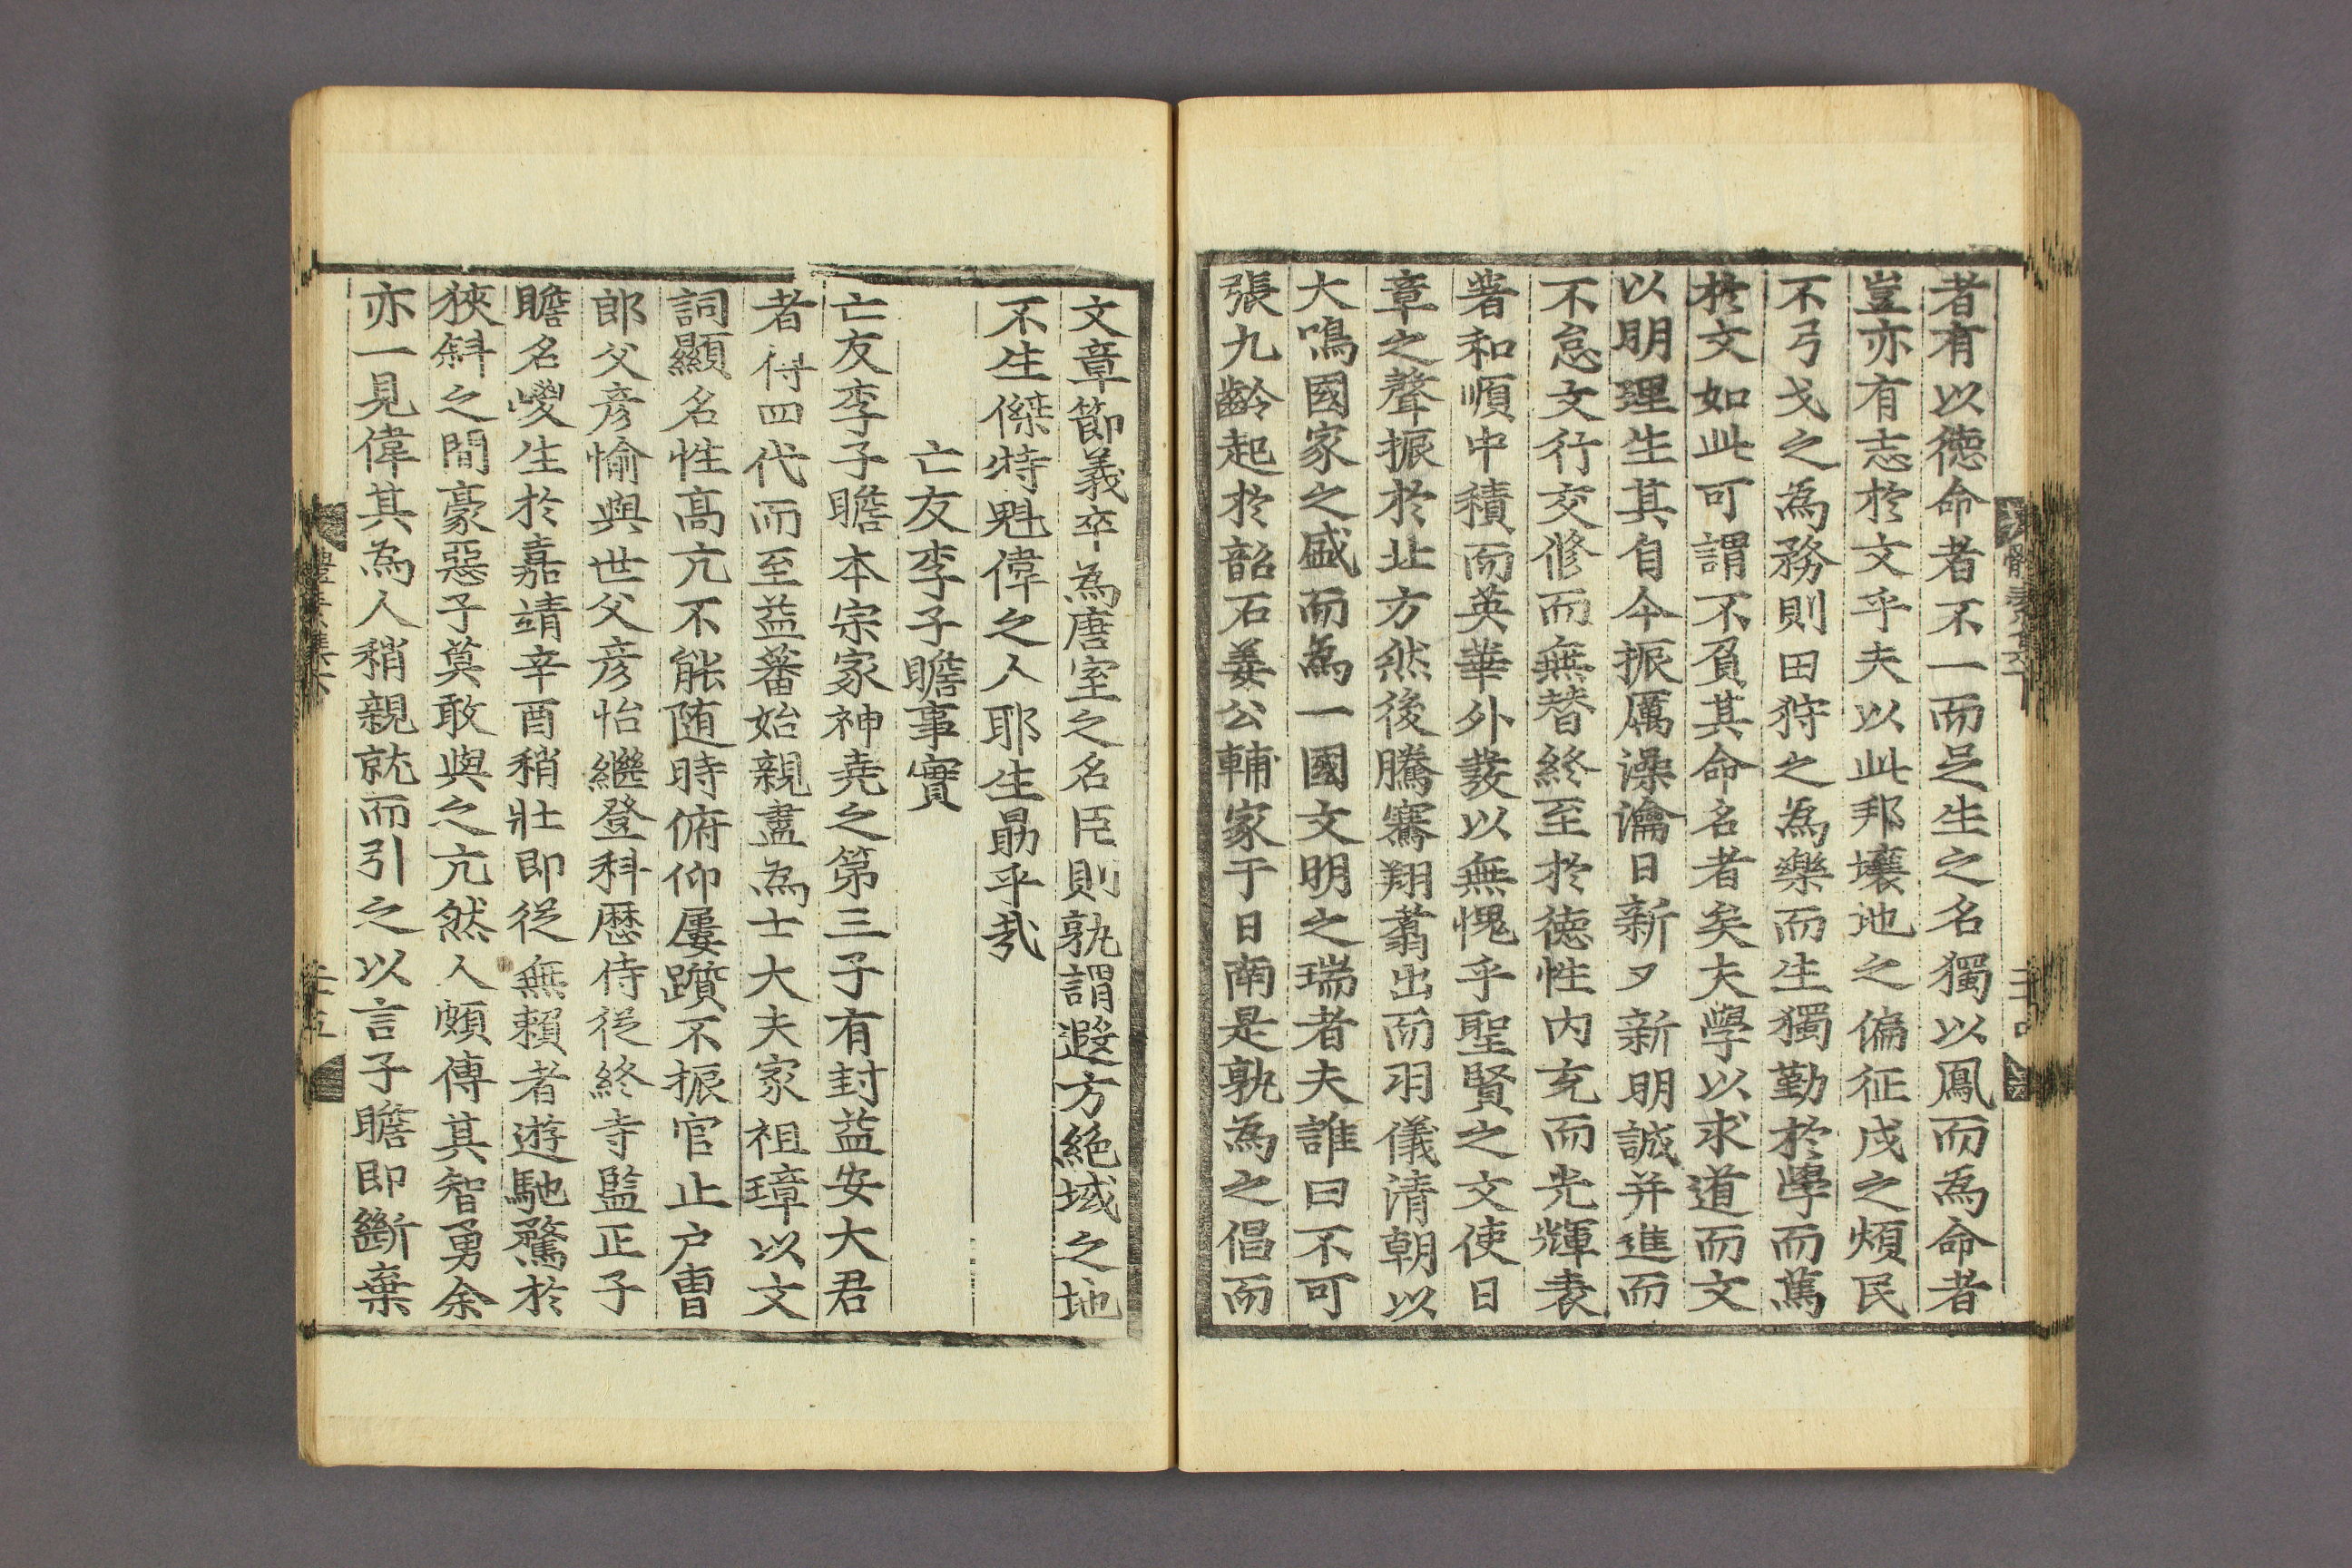 者有以徳命者不一而足生之名獨以鳳而為命者
豈亦有志於文乎夫以此邦壤地之偏征戍之煩民
不弓戈之為務則田狩之為樂而生獨勤於學而萭
於文如此可謂不負其命名者矣夫學以求道而文
以明理生其自今振厲澡瀹日新夕新明誠并進而
不怠文行交修而無替終至於徳性內充而光輝表
著和順中積而英華外發以無愧乎聖賢之文使日
章之聲振於北方然後騰騫翔翥出而羽儀清朝以
大鳴國家之盛而為一國文明之瑞者夫誰曰不可
張九齡起於韶石姜公輔家于日南是孰為之倡而
文章節義卒為唐室之名臣則孰謂遐方絕域之地
不生傑特魁偉之人耶生勗乎哉
亡友李子瞻事實
亡友李子瞻本宗家神堯之第三子有封益安大君
者侍四代而至益蕃始親盡為士大夫家祖璋以文
詞顯名性高亢不能随時俯仰屢躓不振官止户曹
郎父彦愉與世父彦怡繼登科歴侍從終寺監正子
瞻名嬡生於嘉靖辛酉稍壯即從無賴者遊馳騖於
狹斜之間豪惡子莫敢與之亢然人頗傳其智勇余
亦一見偉其為人稍親就而引之以言子瞻即斷棄
二十五